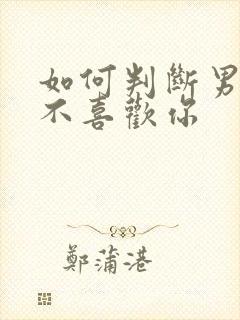 如何判斷男
不喜歡你
鄭蒲港